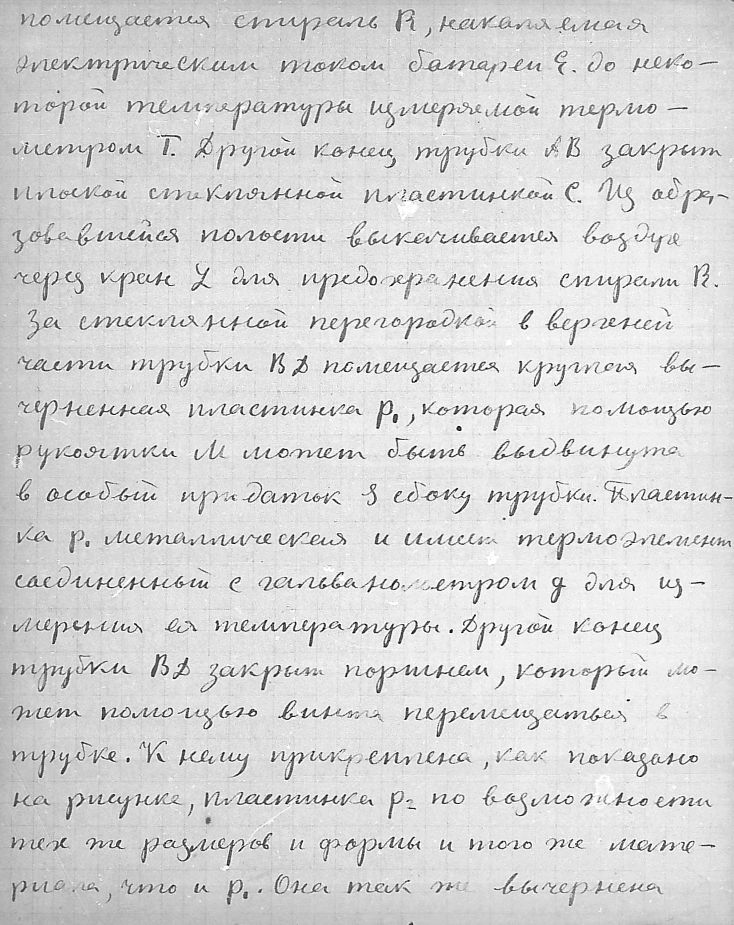 помещается спираль R, накаляемая
электрическим током батареи E. до неко-
торой температуры измеряемой термо-
метром T. Другой конец трубки AB закрыт
плоской стеклянной пластинкой C. Из обра-
зовавшейся полости выкачивается воздух
через кран L для предохранения спирали R.
За стеклянной перегородкой в верхней
части трубки BD помещается круглая вы-
черненная пластинка p₁, которая помощью
рукоятки M может быть выдвинута
в особый придаток S сбоку трубки. Пластин-
ка p₁ металлическая и имеет термоэлемент
соединенный с гальванометром g для из-
мерения ея температуры. Другой конец
трубки BD закрыт поршнем, который мо-
жет помощью винта перемещаться в
трубке. К нему прикреплена, как показано
на рисунке, пластинка p₂ по возможности
тех же размеров и формы и того же мате-
риала, что и p₁. Она так же вычернена